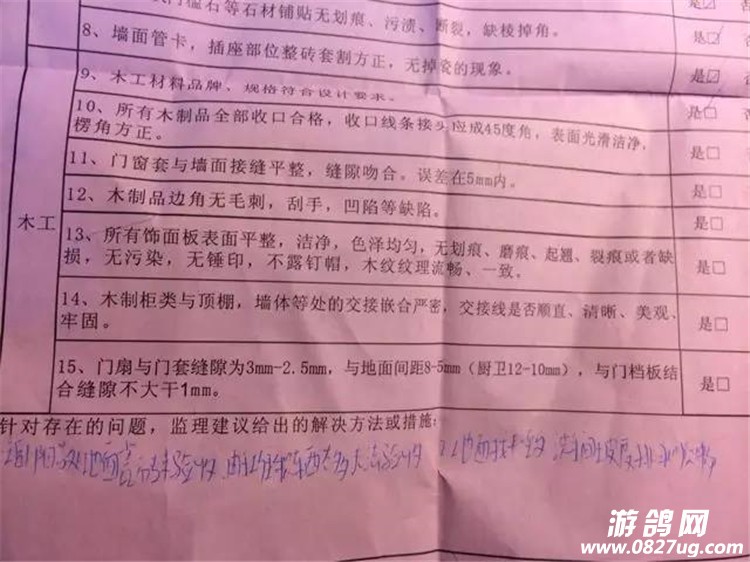 门槛石等石材铺贴无划痕、污渍、断裂，缺棱掉角。 是☑
8、墙面管卡，插座部位整砖套割方正，无掉瓷的现象。 是☑
9、木工材料品牌、规格符合设计要求。 是□
木工
10、所有木制品全部收口合格，收口线条接头应成45度角，表面光滑洁净， 是□
楞角方正。
11、门窗套与墙面接缝平整，缝隙吻合。误差在5mm内。 是□
12、木制品边角无毛刺，刮手，凹陷等缺陷。 是□
13、所有饰面板表面平整，洁净，色泽均匀，无划痕、磨痕、起翘、裂痕或者缺 是□
损，无污染，无锤印，不露钉帽，木纹纹理流畅、一致。
14、木制柜类与顶棚，墙体等处的交接嵌合严密，交接线是否顺直、清晰、美观、 是□
牢固。
15、门扇与门套缝隙为3mm-2.5mm，与地面间距8-5mm（厨卫12-10mm），与门档板结 是□
合缝隙不大于1mm。
针对存在的问题，监理建议给出的解决方法或措施：
地面 验收 东西太多无法验收 地面找平
游鸽网
www.0827ug.com